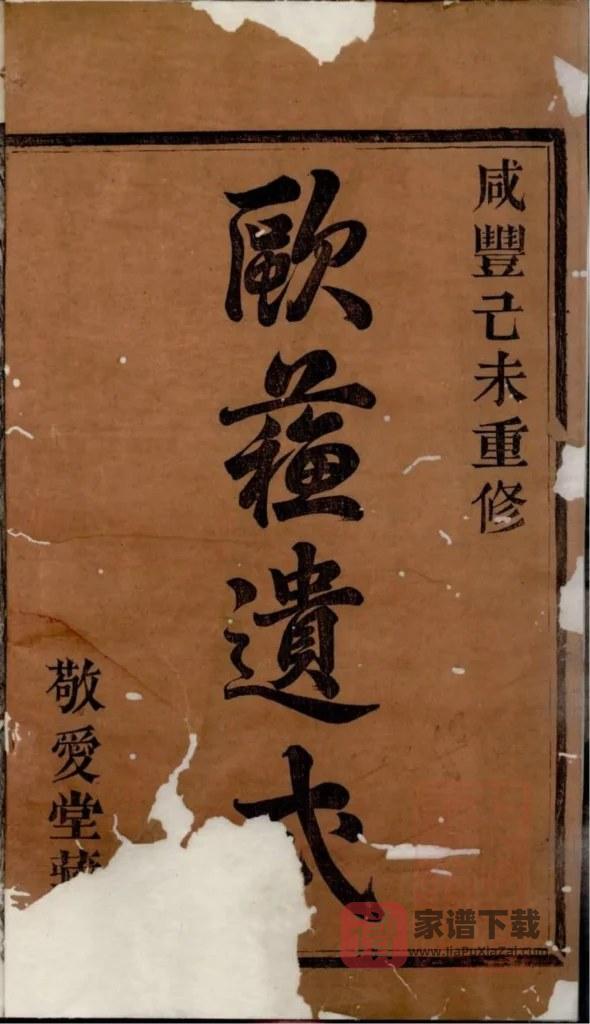 咸豐己未重修
歐蘓遺式
敬愛堂
家谱下载
www.jiaPuXiaZai.com